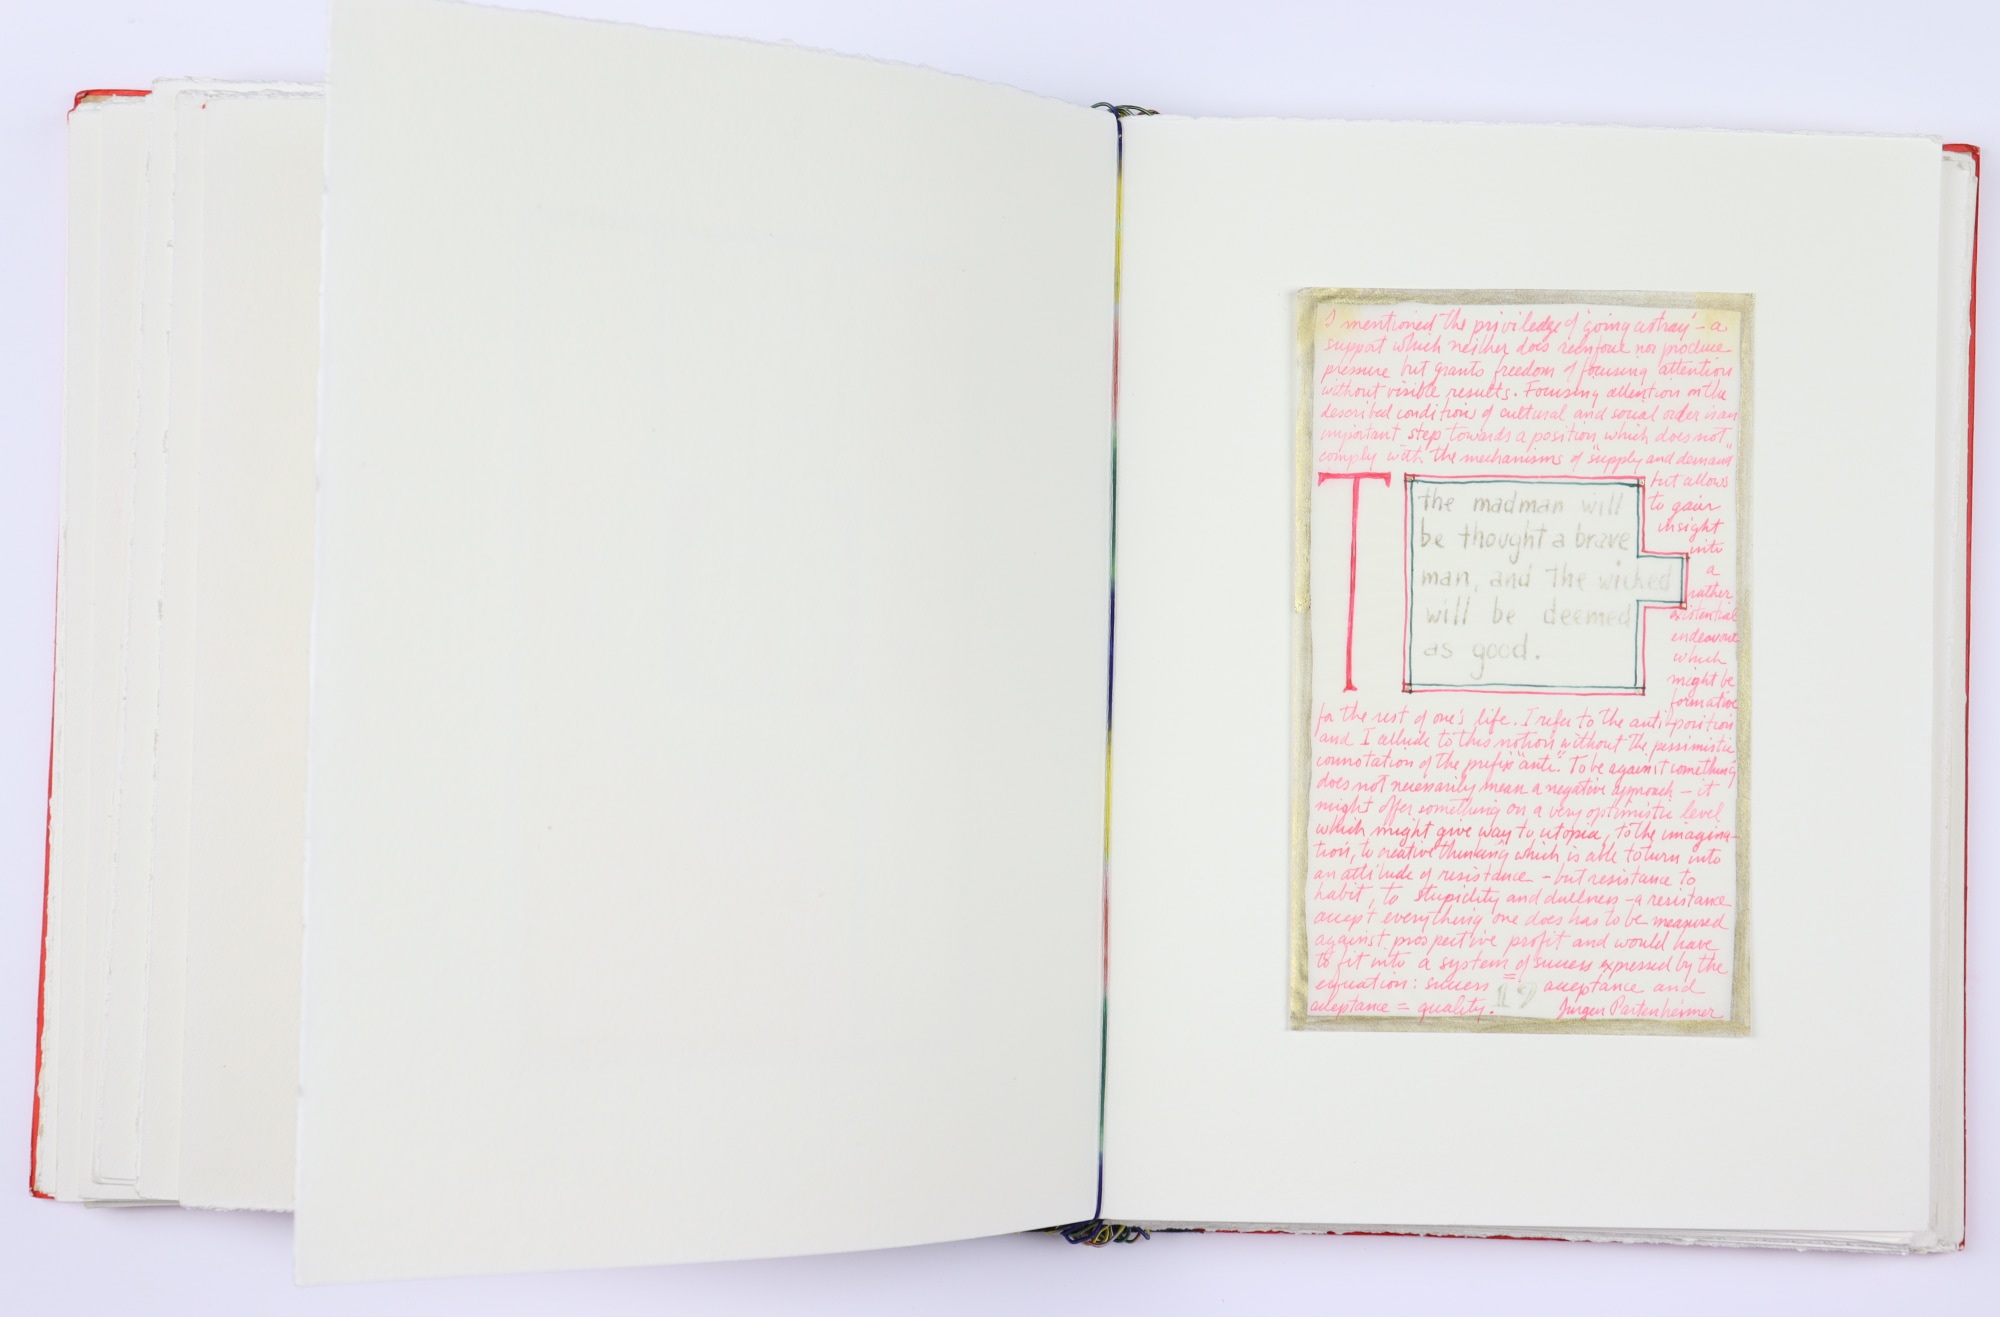 I mentioned the priviledge of 'going astray' – a
support which neither does reinforce nor produce
pressure but grants freedom of focusing attention
without visible results. Focusing attention on the
described conditions of cultural and social order is an
important step towards a position which does not
comply with the mechanisms of "supply and demand"
but allows
to gain
insight
into
a
rather
existential
endeavour
which
might be
formative
T
the madman will
be thought a brave
man, and the wicked
will be deemed
as good.
for the rest of one's life. I refer to the anti-position
and I allude to this notion without the pessimistic
connotation of the prefix "anti". To be against something
does not necessarily mean a negative approach – it
might offer something on a very optimistic level
which might give way to utopia, to the imagina-
tion, to creative thinking which is able to turn into
an attitude of resistance – but resistance to
habit, to stupidity and dullness – a resistance
accept everything one does has to be measured
against prospective profit and would have
to fit into a system of success expressed by the
equation: success = acceptance and
acceptance = quality. 19 Jürgen Partenheimer